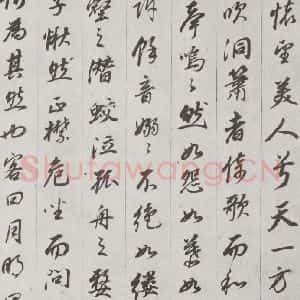 懷望美人兮天一方
吹洞簫者倚歌而和
聲嗚〻然如怨如慕如
訴餘音嫋〻不絕如縷
壑之潛蛟泣孤舟之嫠
子愀然正襟危坐而問
何為其然也客曰月明星
Shufawang.CN